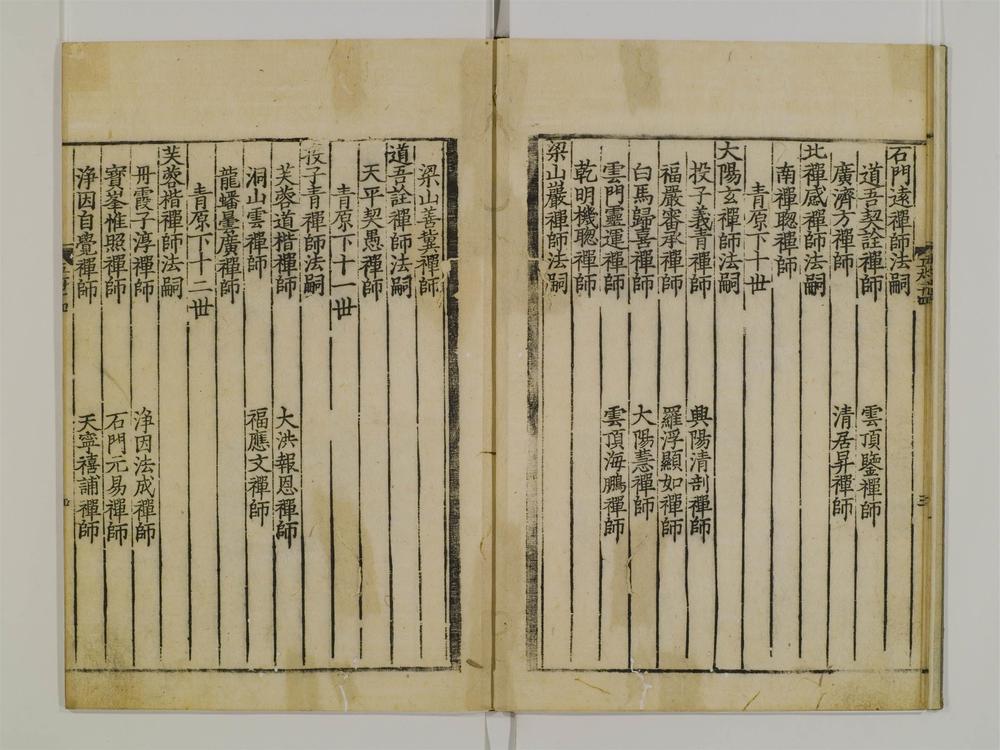 石門遠禪師法嗣
道吾契詮禪師 雲頂鑒禪師
廣濟方禪師 清居昇禪師
北禪感禪師法嗣
南禪聰禪師
青原下十世
大陽玄禪師法嗣
投子義青禪師 興陽清剖禪師
福嚴審承禪師 羅浮顯如禪師
白馬歸喜禪師 大陽慧禪師
雲門靈運禪師 雲頂海鵬禪師
乾明機聰禪師
梁山巖禪師法嗣
梁山善冀禪師
道吾詮禪師法嗣
天平契愚禪師
青原下十一世
投子青禪師法嗣
芙蓉道楷禪師 大洪報恩禪師
洞山雲禪師 福應文禪師
龍蟠曇廣禪師
青原下十二世
芙蓉楷禪師法嗣
丹霞子淳禪師 淨因法成禪師
寶峯惟照禪師 石門元易禪師
淨因自覺禪師 天寧禧誧禪師